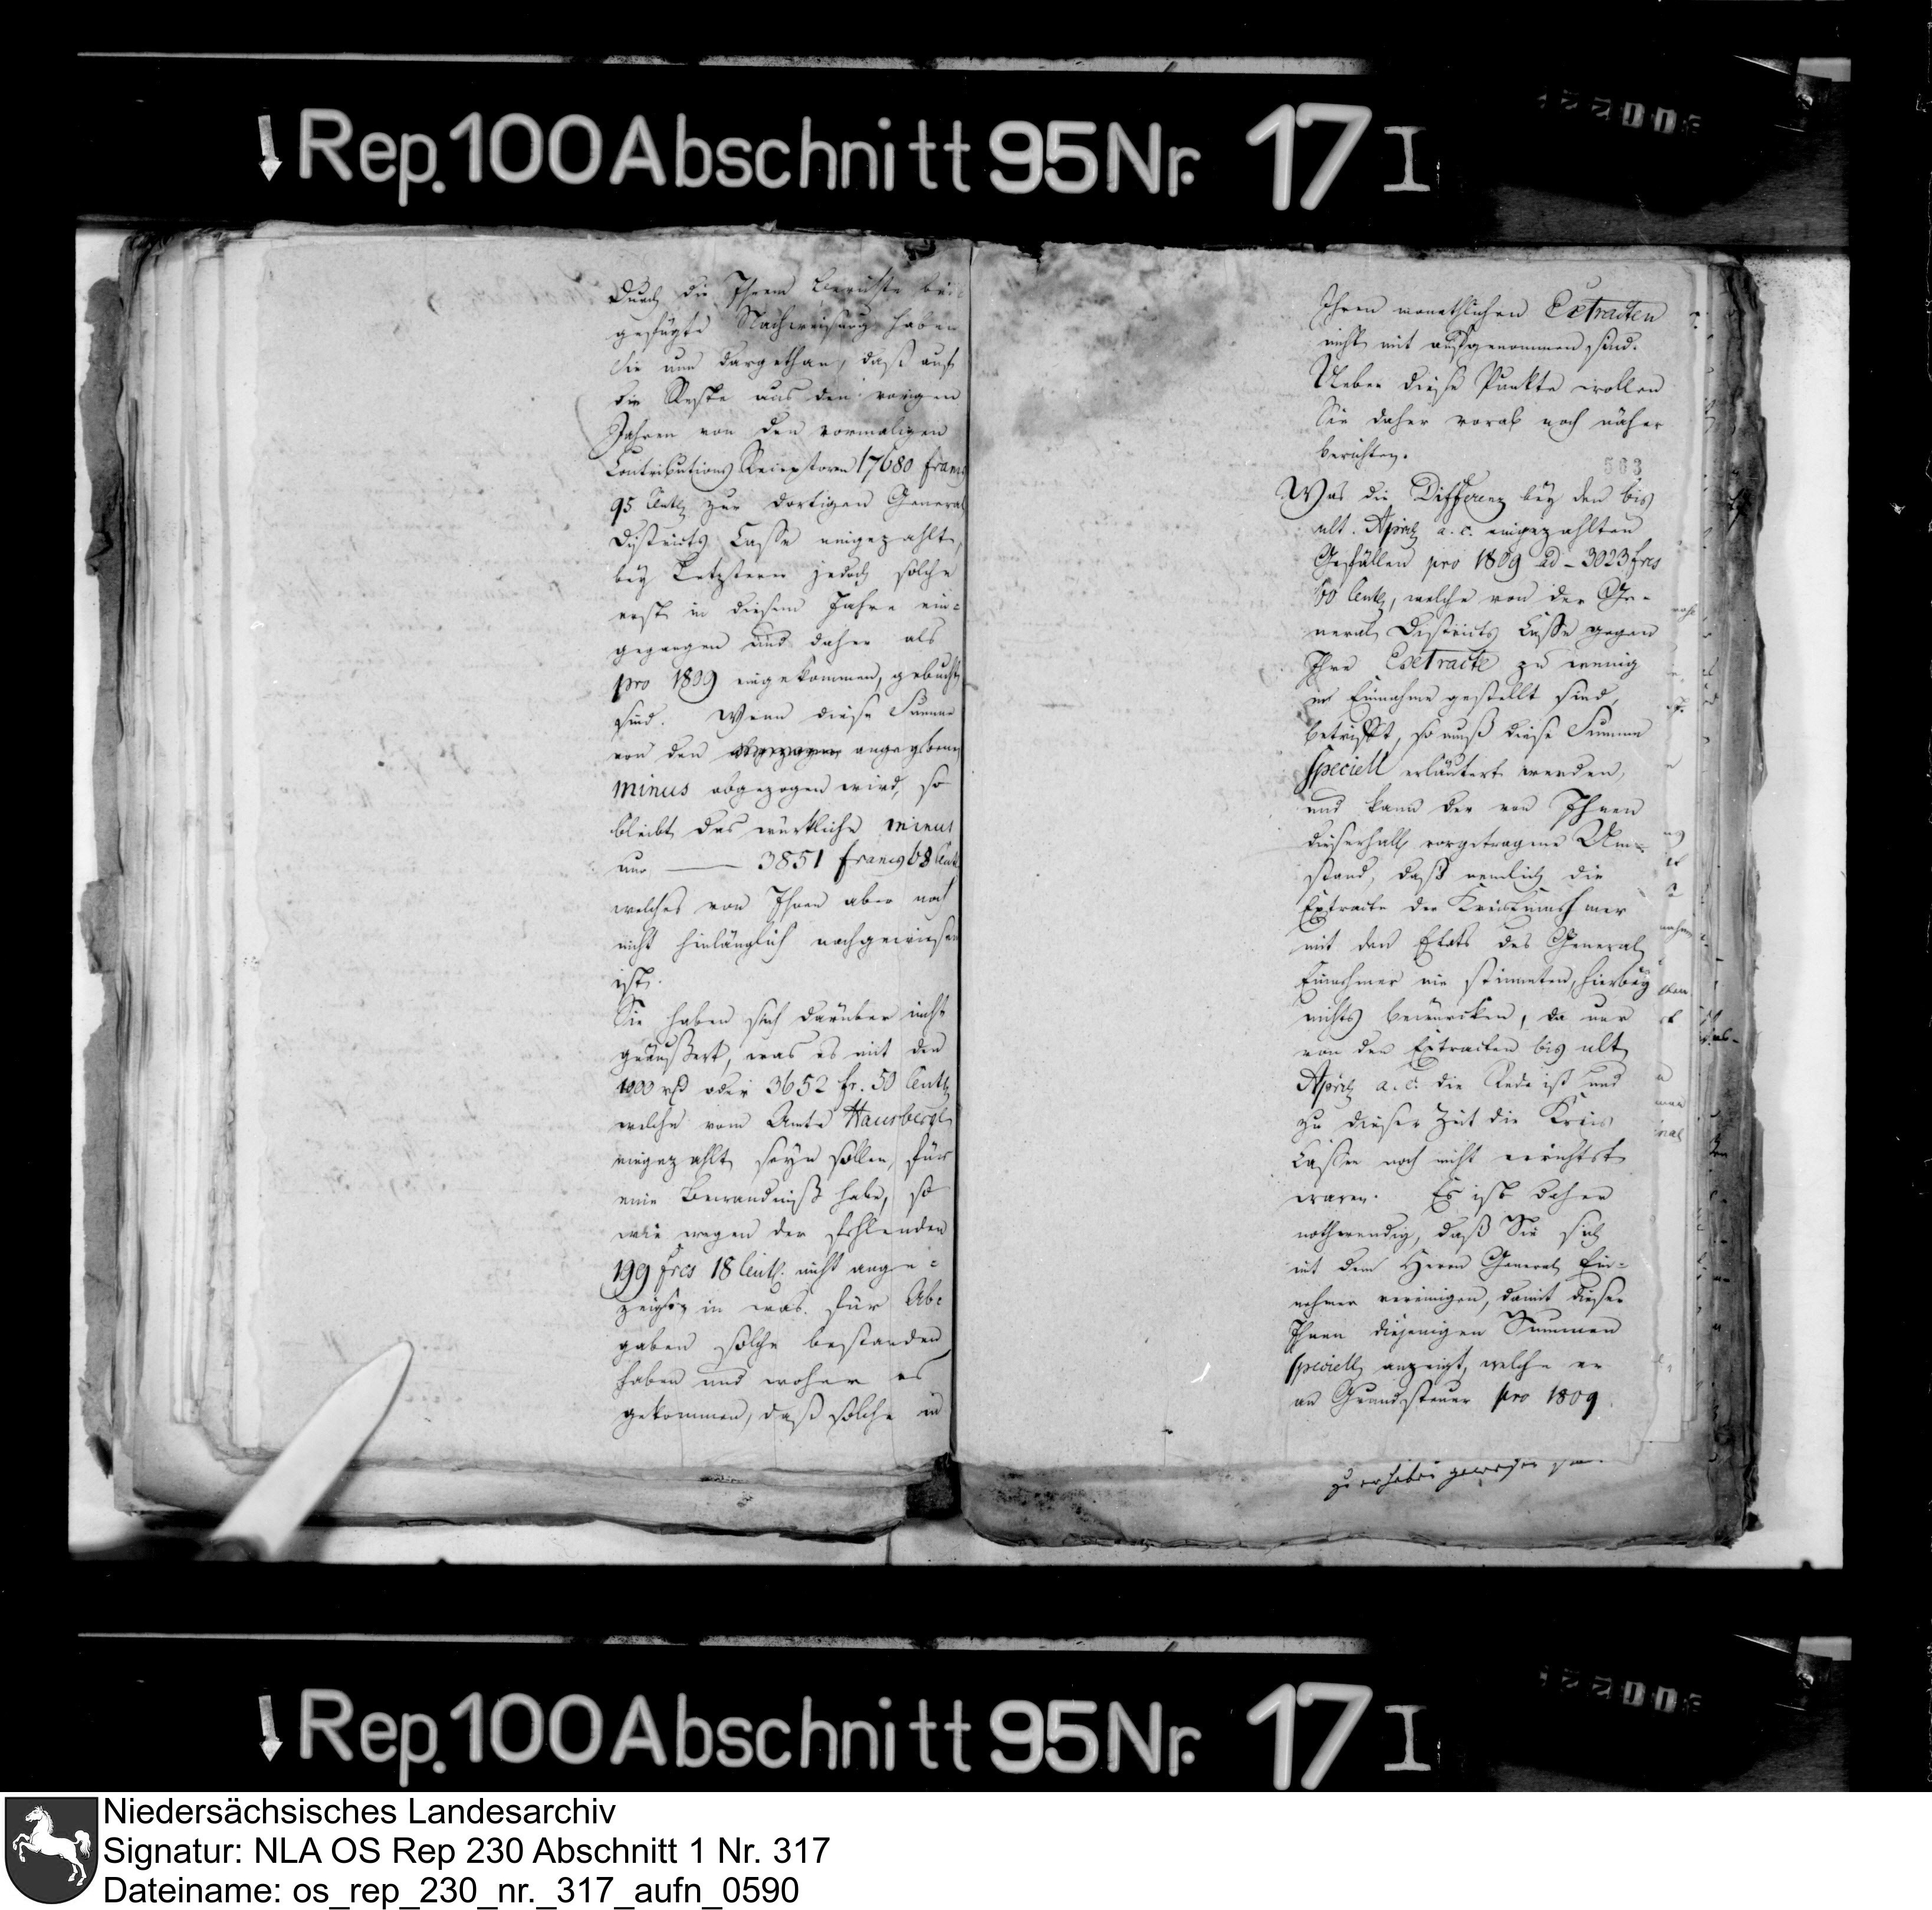 Rep. 100 Abschnitt 95 Nr. 17 I
Durch die Ihrem Berichte bei-
gefügte Nachweisung haben
Sie nun dargethan, daß auf
die Reste aus den vorigen
Jahren von den vormaligen
Contributions Receptoren 17680 francs
95 Centl zur dortigen General
Districts Casse eingezahlt,
bey Letztern jedoch solche
erst in diesem Jahre ein=
gegangen und daher als
pro 1809 eingekommen, gebucht
sind. Wenn diese Summe
von den angegebenen
minus abgezogen wird, so
bleibt das würkliche minus
nur — 3851 francs 68 Centl
welches von Ihnen aber noch
nicht hinlänglich nachgewiesen
ist.
Sie haben sich darüber nicht
geäußert, was es mit den
1000 rt oder 3652 fr. 50 Centl
welche vom Amte Hausberge
eingezahlt seyn sollen, für
eine Bewandniß habe, so
wie wegen der fehlenden
199 frcs 18 Centl. nicht ange=
zeigt, in was für Ab=
gaben solche bestanden
haben und woher es
gekommen, daß solche in
Ihren monathlichen Extracten
nicht mit aufgenommen sind.
Ueber diese Punkte wollen
Sie daher vorab noch näher
berichten.
503
Was die Differenz bey den bis
ult. April a. c. eingezahlten
Gefällen pro 1809 ad - 3023 frcs
60 Centl, welche von der Ge-
neral Districts Casse gegen
Ihre Extracte zu wenig
in Einnahme gestellt sind,
betrifft, so muß diese Summe
speciell erläutert werden,
und kann der von Ihnen
dieserhalb vorgetragene Um-
stand, daß nemlich die
Extracte der Kreiseinnehmer
mit den Etats des General
Einnehmer nie stimmten, hierbey
nichts bewürcken, da nur
von den Extracten bis ult
April a. c. die Rede ist und
zu dieser Zeit die Kreis
Cassen noch nicht errichtet
waren. Es ist daher
nothwendig, daß Sie sich
mit dem Herrn General Ein=
nehmer vereinigen, damit dieser
Ihnen diejenigen Summen
speciell anzeigt, welche er
an Grundsteuer pro 1809
zu erheben gewesen
Rep. 100 Abschnitt 95 Nr. 17 I
Niedersächsisches Landesarchiv
Signatur: NLA OS Rep 230 Abschnitt 1 Nr. 317
Dateiname: os_rep_230_nr._317_aufn_0590